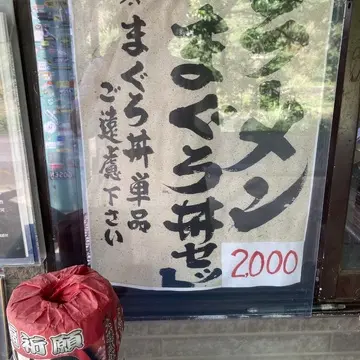 ラーメン
まぐろ丼セット
2,000
※まぐろ丼単品
ご遠慮下さい
祈願